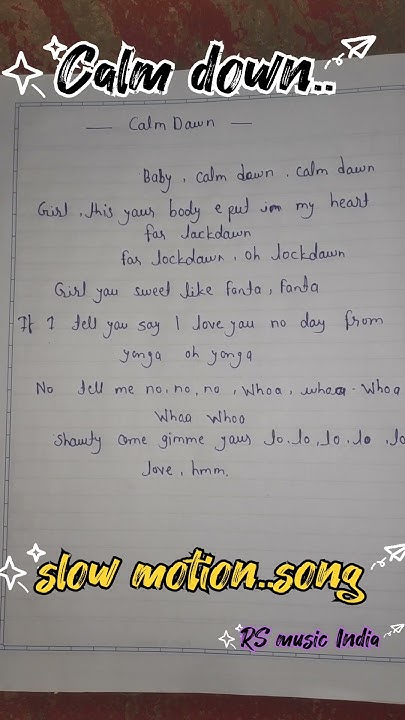 Calm down..
— Calm Dawn —
Baby, calm down, calm dawn
Girl, this yaur body e put in my heart
far lackdawn
far lockdawn, oh lockdawn
Girl you sweet like Fanta, Fanta
If I tell you say I love you no day from
yanga oh yanga
No tell me no, no, no, Whoa, whoa - Whoa
Whaa Whoa
Shawty come gimme yaur lo, lo, lo, lo, lo
love, hmm.
slow motion..song
RS music India